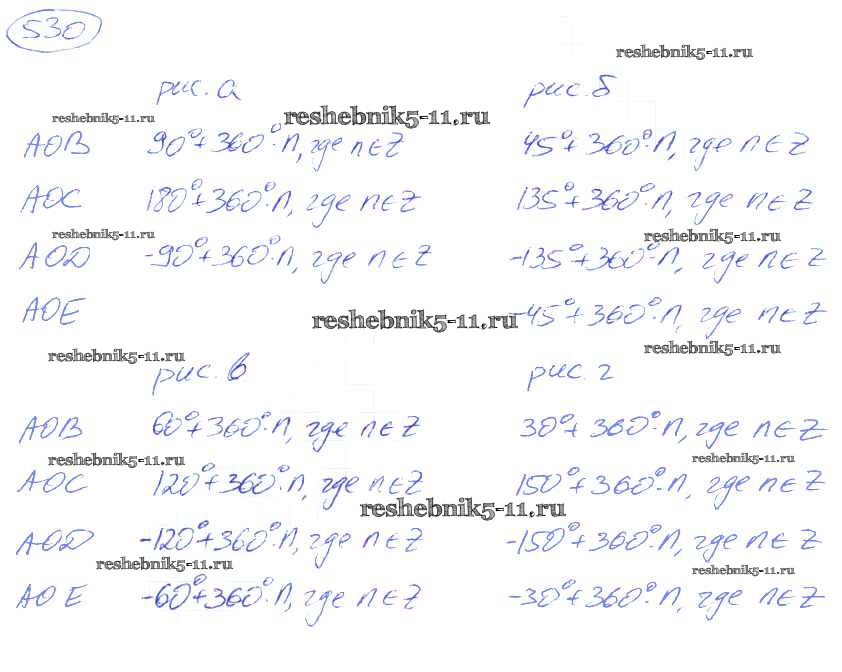 530
reshebnik5-11.ru
рис. а рис. б
reshebnik5-11.ru reshebnik5-11.ru
АОВ 90° + 360°·n, где n∈Z 45° + 360°·n, где n∈Z
АОС 180° + 360°·n, где n∈Z 135° + 360°·n, где n∈Z
reshebnik5-11.ru reshebnik5-11.ru
АОD -90° + 360°·n, где n∈Z -135° + 360°·n, где n∈Z
АОЕ -45° + 360°·n, где n∈Z
reshebnik5-11.ru
reshebnik5-11.ru reshebnik5-11.ru
рис. в рис. г
АОВ 60° + 360°·n, где n∈Z 30° + 360°·n, где n∈Z
reshebnik5-11.ru reshebnik5-11.ru
АОС 120° + 360°·n, где n∈Z 150° + 360°·n, где n∈Z
reshebnik5-11.ru
АОD -120° + 360°·n, где n∈Z -150° + 360°·n, где n∈Z
reshebnik5-11.ru reshebnik5-11.ru
АОЕ -60° + 360°·n, где n∈Z -30° + 360°·n, где n∈Z